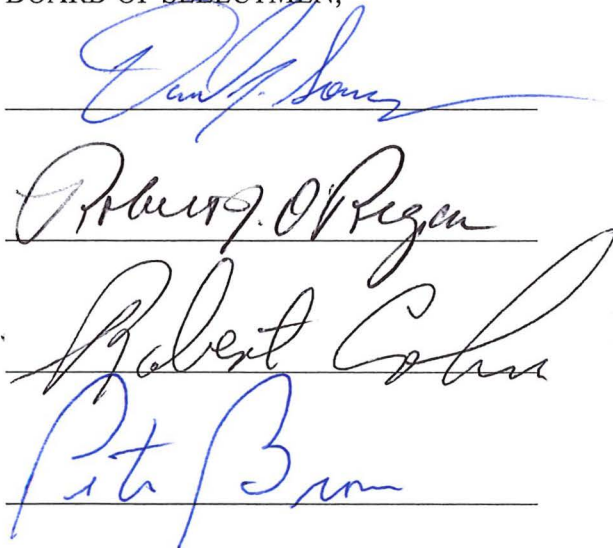 BOARD OF SELECTMEN,
Robert J. O'Regan
Robert Cohn
Peter Brown